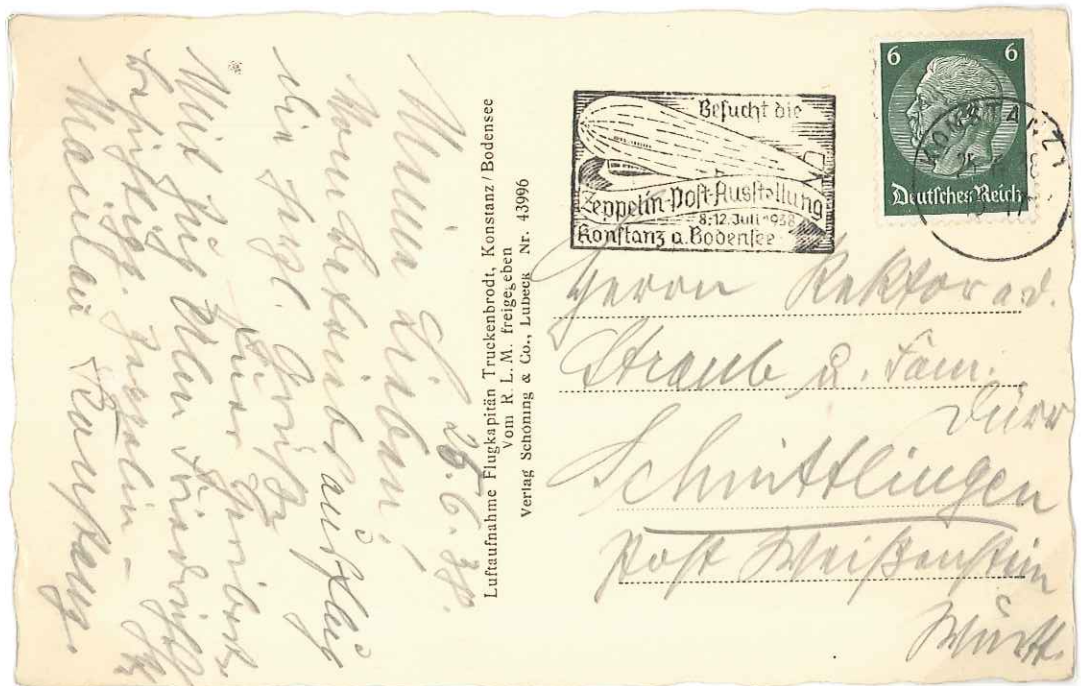 26.6.38.
Meine Lieben!
die Grüße
Euer
Mit Zug
Besichtig. Zeppelin –
Mainau Konstanz.
Luftaufnahme Flugkapitän Truckenbrodt, Konstanz/Bodensee
Vom R. L. M. freigegeben
Verlag Schöning & Co., Lübeck Nr. 43996
Besucht die
Zeppelin-Post-Ausstellung
8.-12. Juli 1938
Konstanz a. Bodensee
6 6
Deutsches Reich
KONSTANZ
Herrn Rektor a.d.
Straub u. Fam.
Dürr
Schnittlingen
Post Weißenstein
Württ.